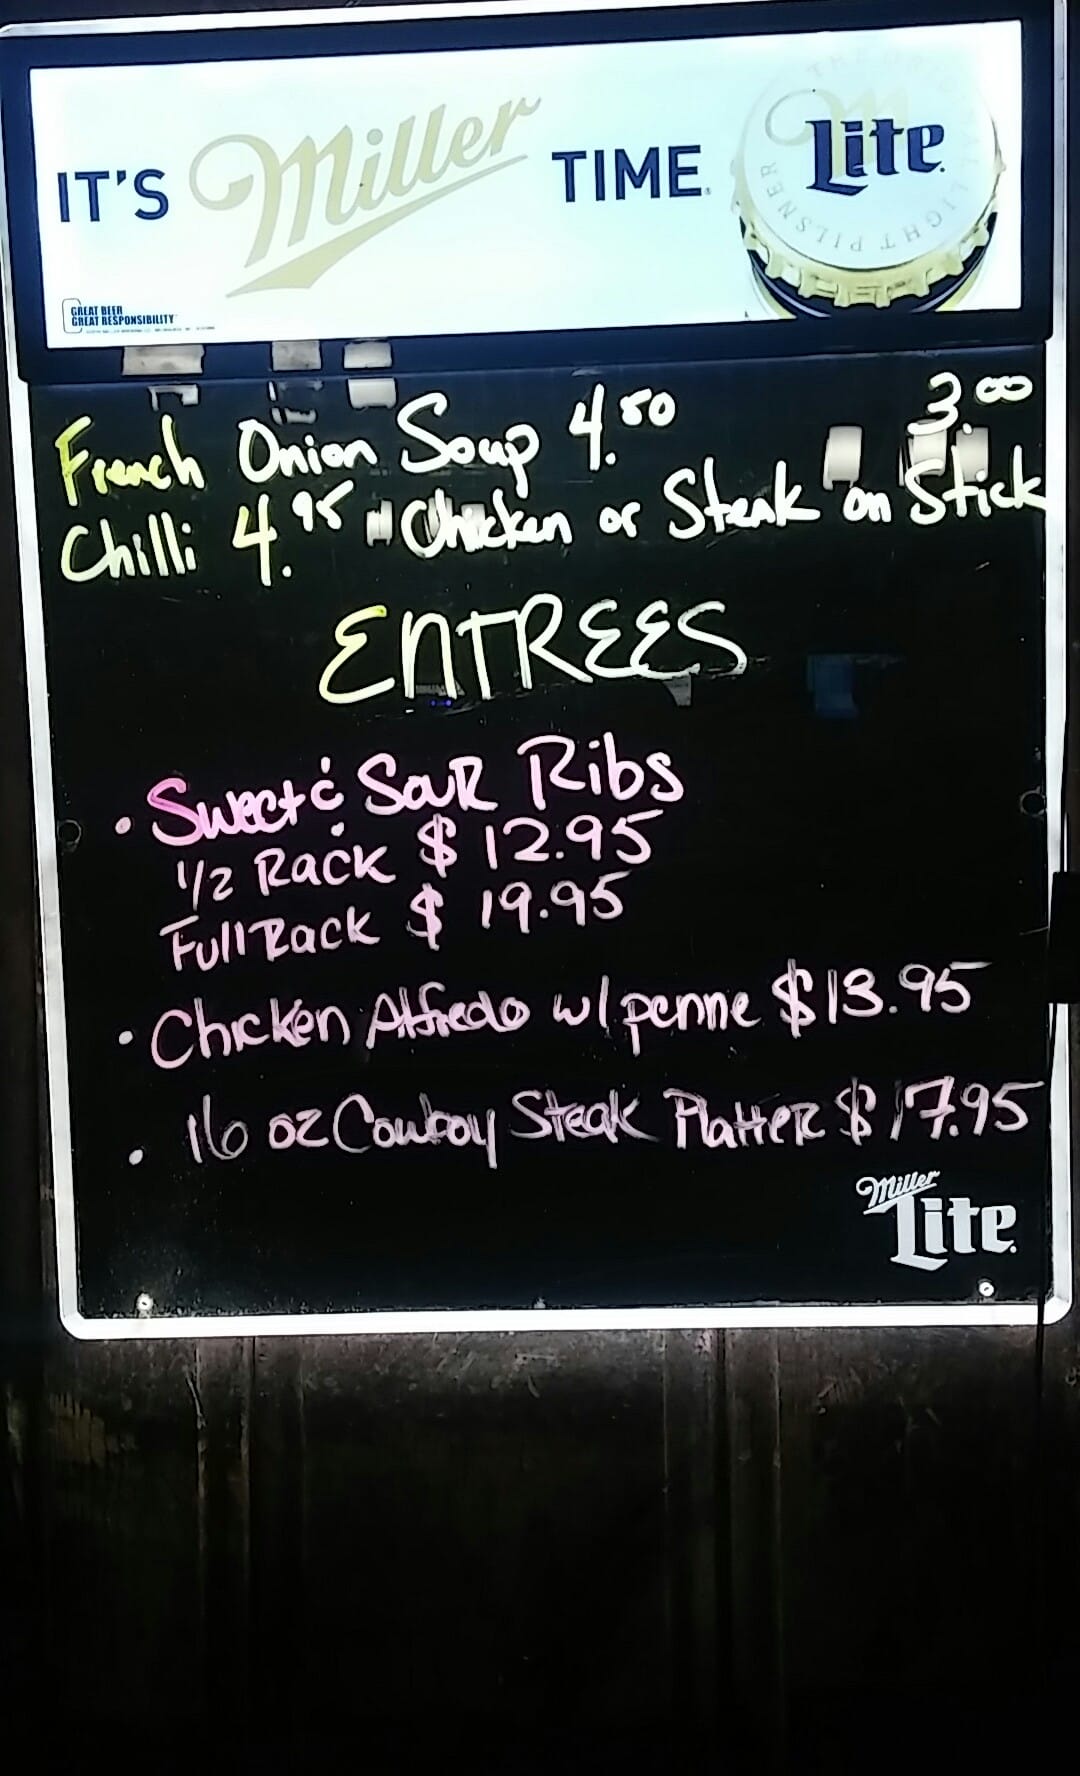 IT'S Miller TIME.
THE ORIGINAL LIGHT PILSNER
Lite
GREAT BEER
GREAT RESPONSIBILITY
French Onion Soup 4.50 3.00
Chilli 4.95 Chicken or Steak on Stick
ENTREES
• Sweet & Sour Ribs
1/2 Rack $ 12.95
Full Rack $ 19.95
• Chicken Alfredo w/ penne $13.95
• 16 oz Cowboy Steak Platter $17.95
Miller
Lite